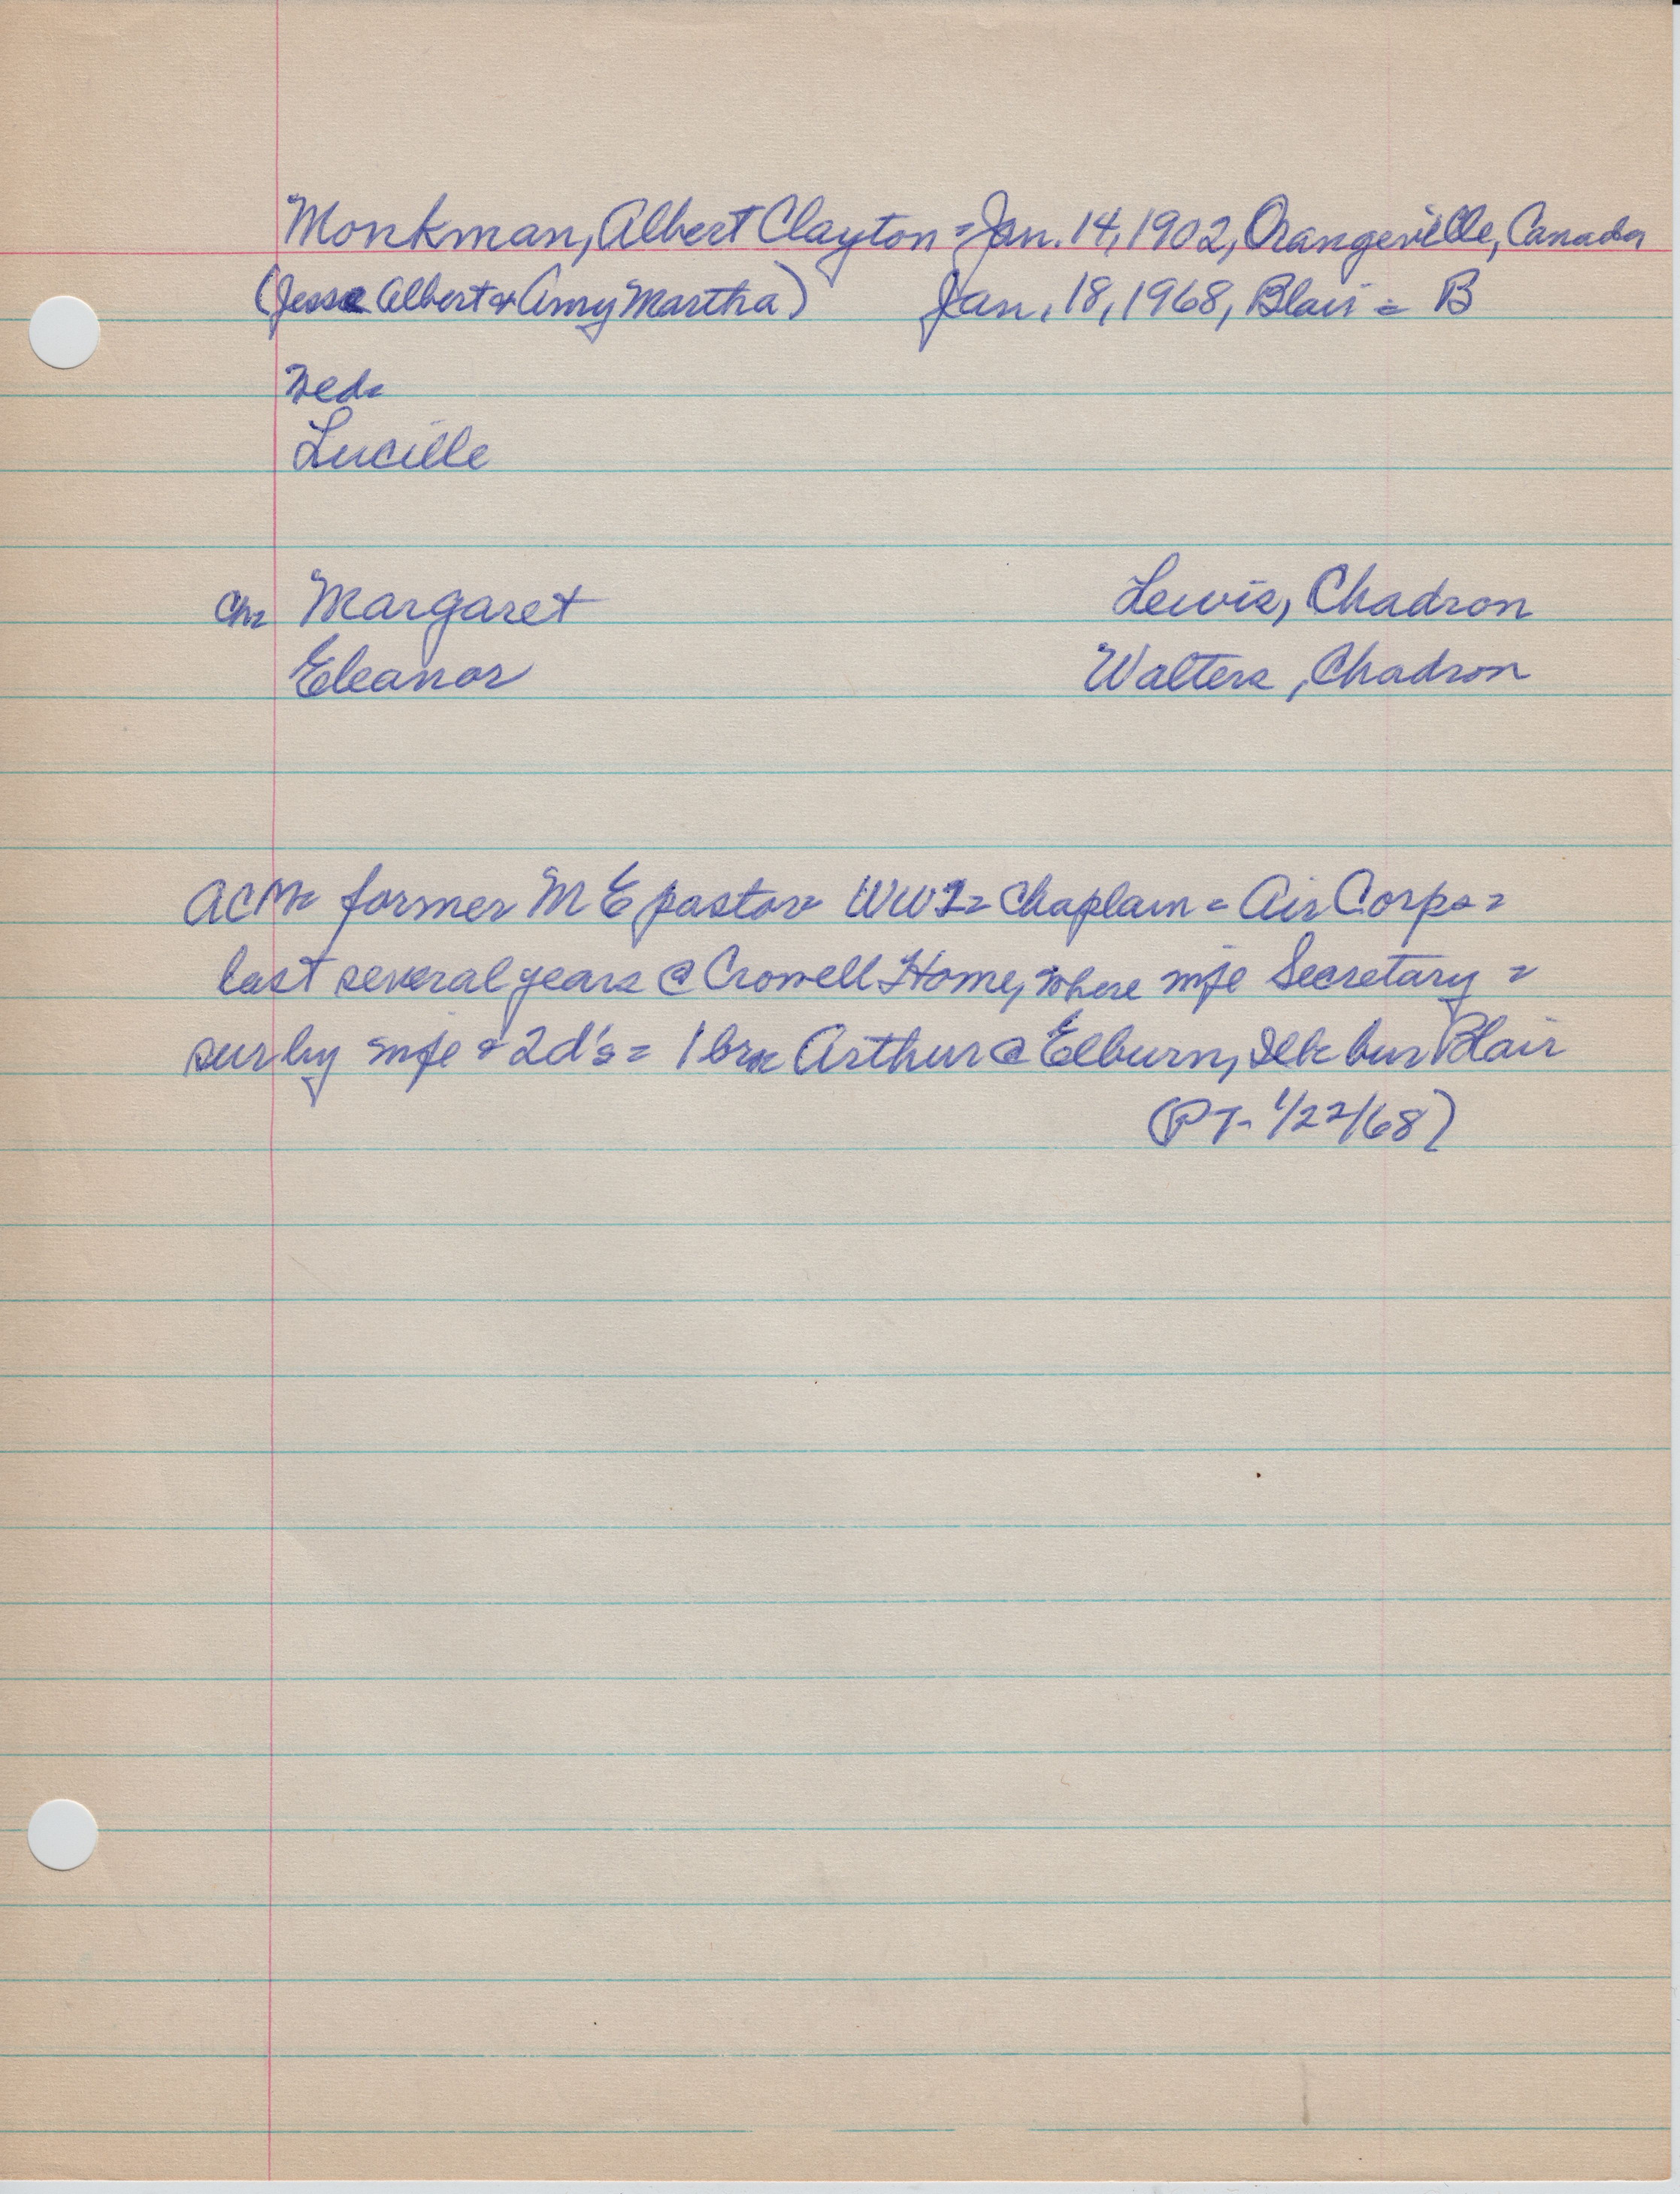 Monkman, Albert Clayton = Jan. 14, 1902, Orangeville, Canada
(Jesse Albert & Amy Martha) Jan. 18, 1968, Blair = B
Wed=
Lucille
Ch= Margaret Lewis, Chadron
Eleanor Walters, Chadron
ACM= former M E pastor= WW2= Chaplain = Air Corps =
last several years @ Crowell Home, where wife Secretary =
sur by wife & 2 d's = 1 br= Arthur @ Elburn, Ill= bur Blair
(PT- 1/22/68)